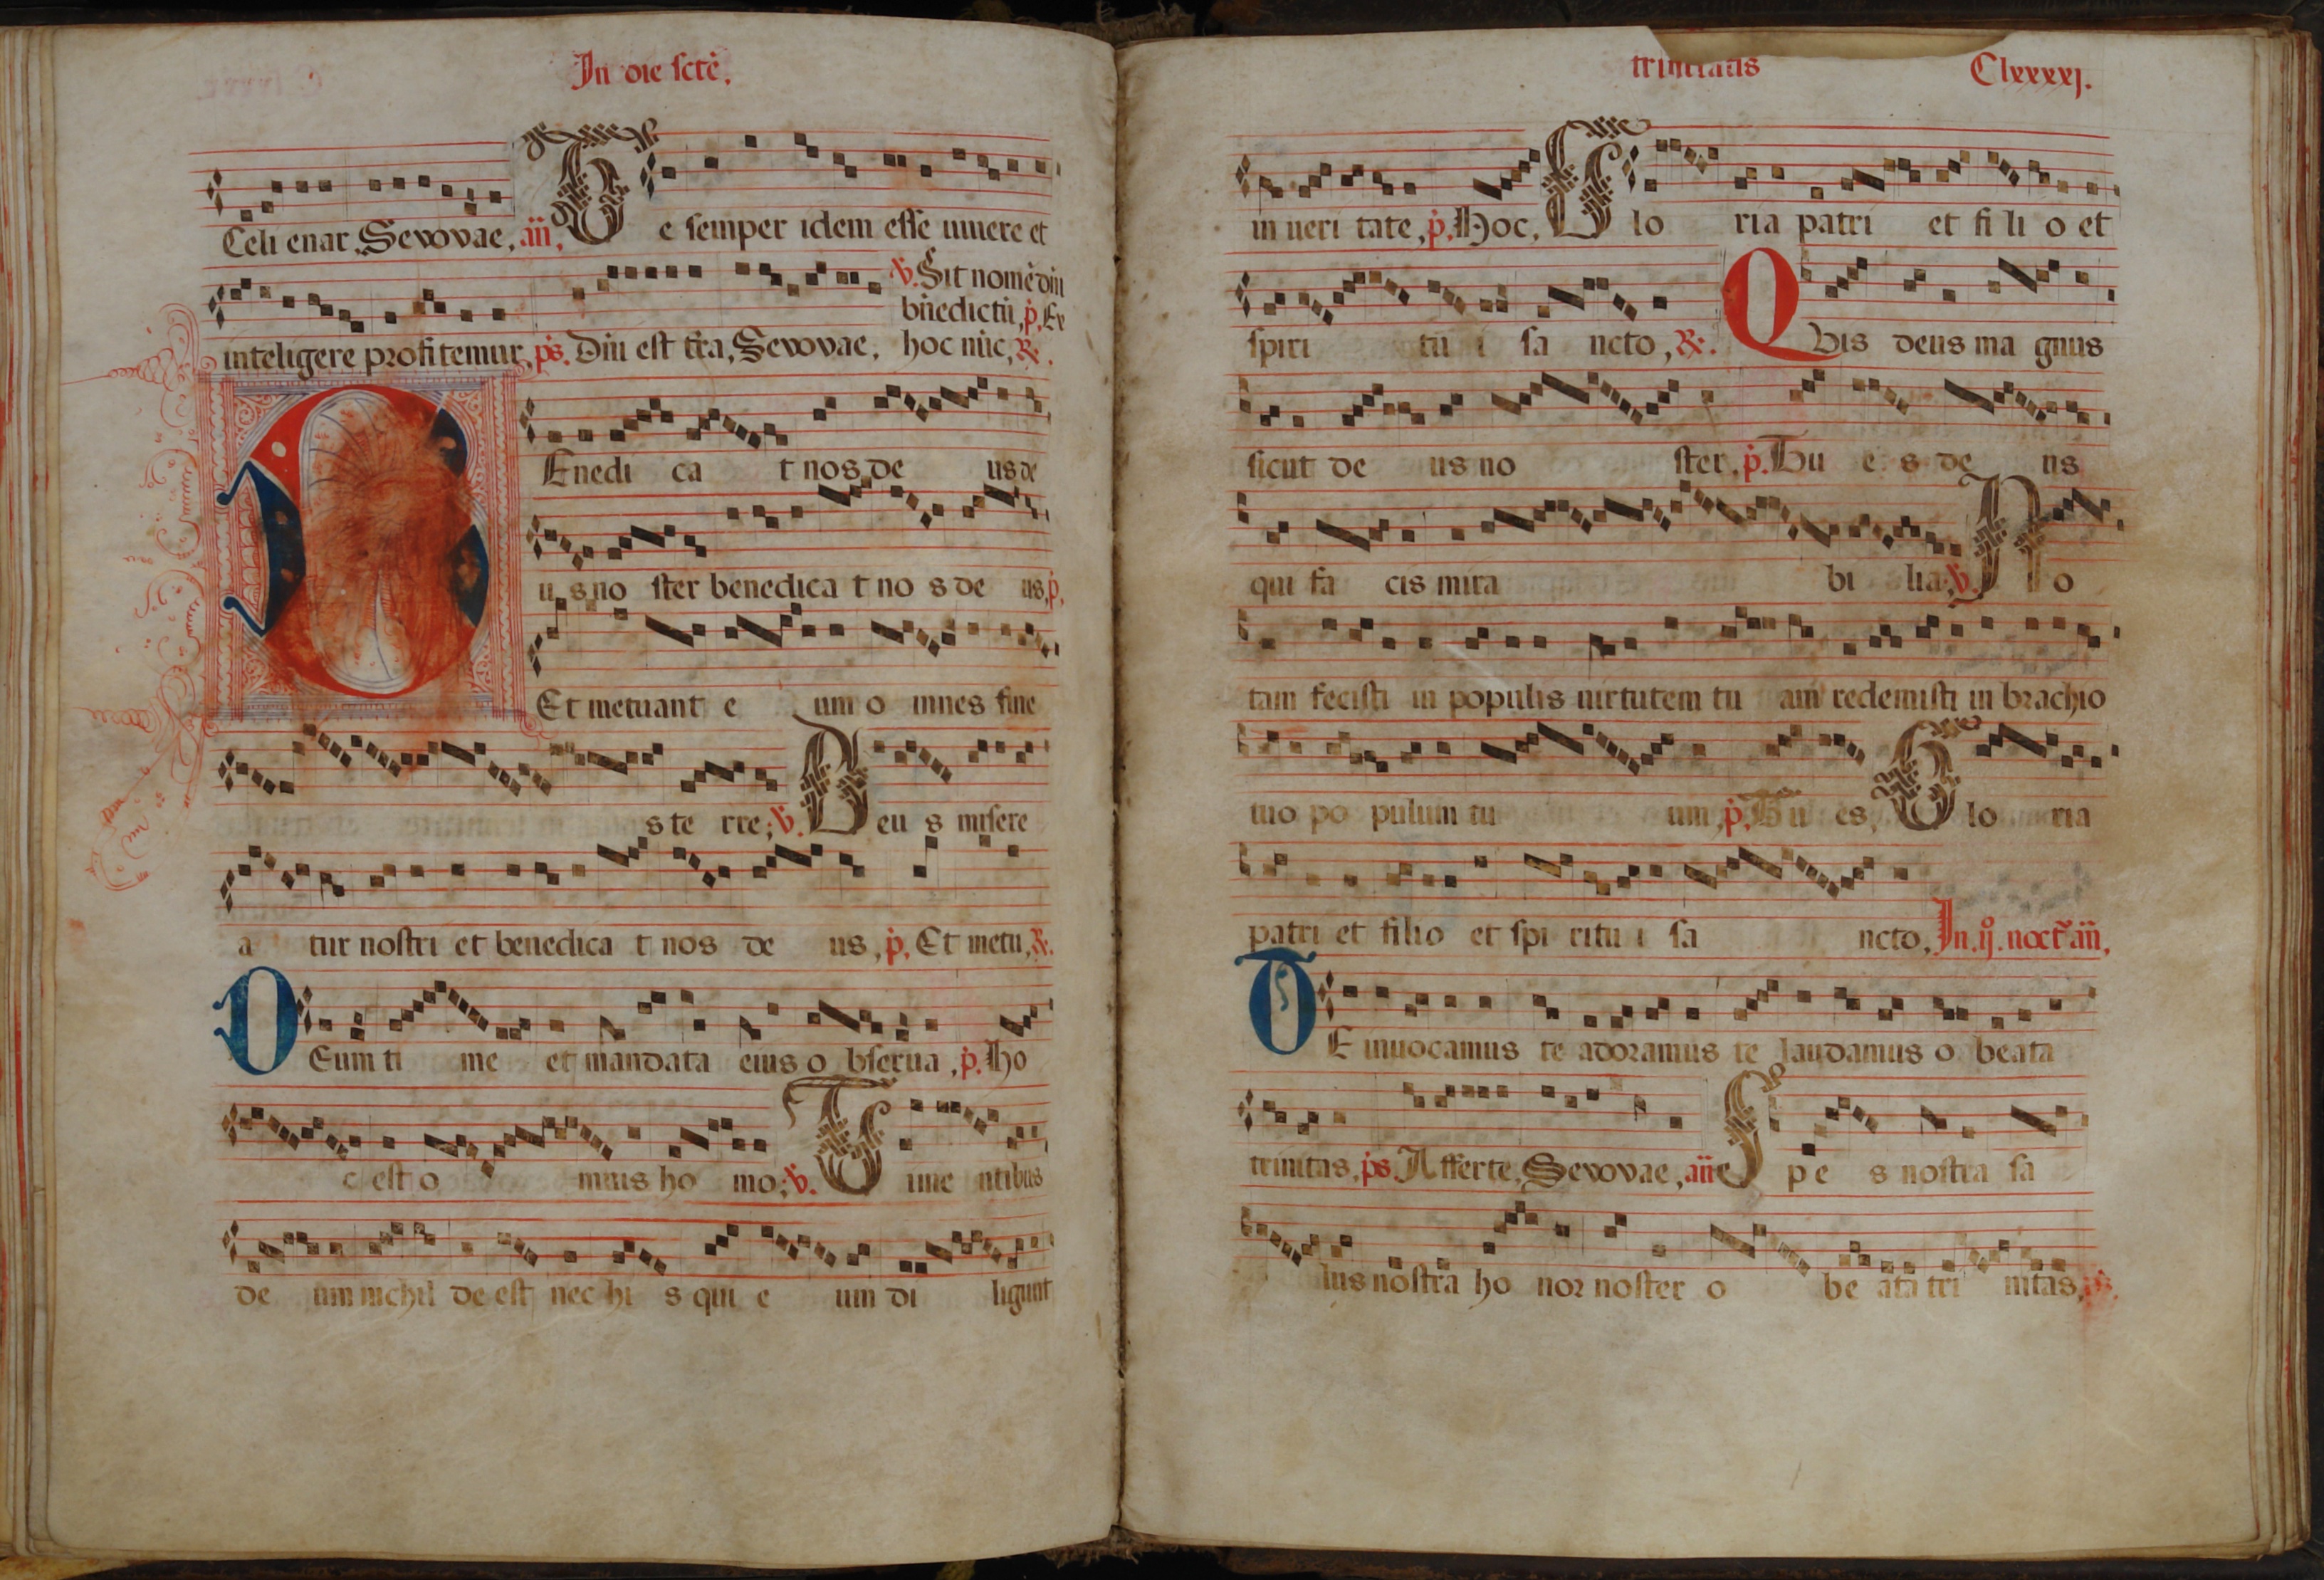 In die scte.
Celi enar, Sevovae, an̄, Te semper idem esse uiuere et
v̇. Sit nomē dn̄i
bn̄edictū, ṗ. Ex
inteligere profitemur, ps. Dn̄i est t̄ra, Sevovae, hoc nūc, ℟.
BEnedi ca t nos de us de
us no ster benedica t no s de us, ṗ.
Et metuant e um o mnes fine
s te rre; v̇. Deu s misere
a tur nostri et benedica t nos de us, ṗ. Et metu, ℟.
DEum ti me et mandata eius o bserua, ṗ. Ho
c est o mnis ho mo; v̇. Time ntibus
de um nichil de est nec hi s qui e um di ligunt
trinitatis Clxxxxj.
in ueri tate, ṗ. Hoc, Glo ria patri et fi li o et
spiri tu i sa ncto, ℟. Qvis deus ma gnus
sicut de us no ster, ṗ. Tu e s de us
qui fa cis mira bi lia, v̇. No
tam fecisti in populis uirtutem tu am redemisti in brachio
tuo po pulum tu um, ṗ. Tu es, Glo ria
patri et filio et spi ritu i sa ncto, In. ij. noct̄ an̄,
TE inuocamus te adoramus te laudamus o beata
trinitas, ps. Afferte, Sevovae, an̄e Spe s nostra sa
lus nostra ho nor noster o be ata tri nitas, ps.